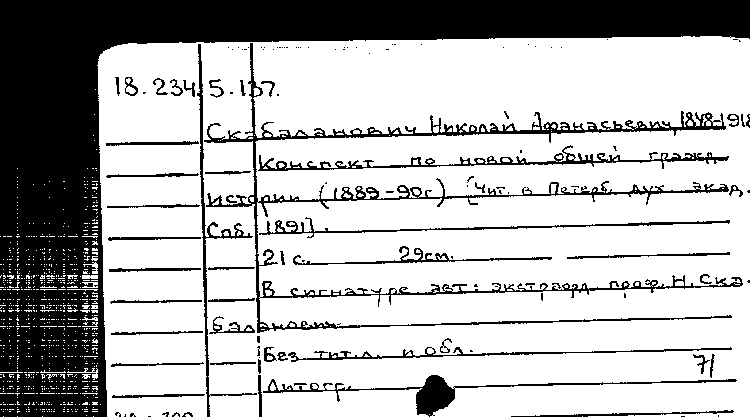 18.234.5.137.
Скабаланович Николай Афанасьевич, 1848-1918
Конспект по новой общей гражд.
истории (1889-90г) [Чит. в Петерб. дух. акад.
Спб. 1891].
21 с. 29см.
В сигнатуре авт: экстраорд. проф. Н. Ска-
баланович.
Без тит.л. и обл.
71
Литогр.